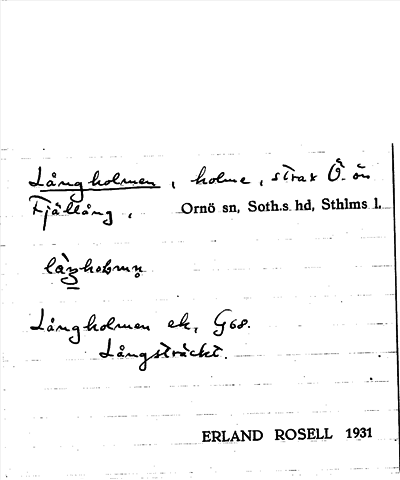 Långholmen, holme, strax Ö. ön
Fjällång, Ornö sn, Soth.s. hd, Sthlms l.
Långholmen ek, G68.
Långsträckt.
ERLAND ROSELL 1931